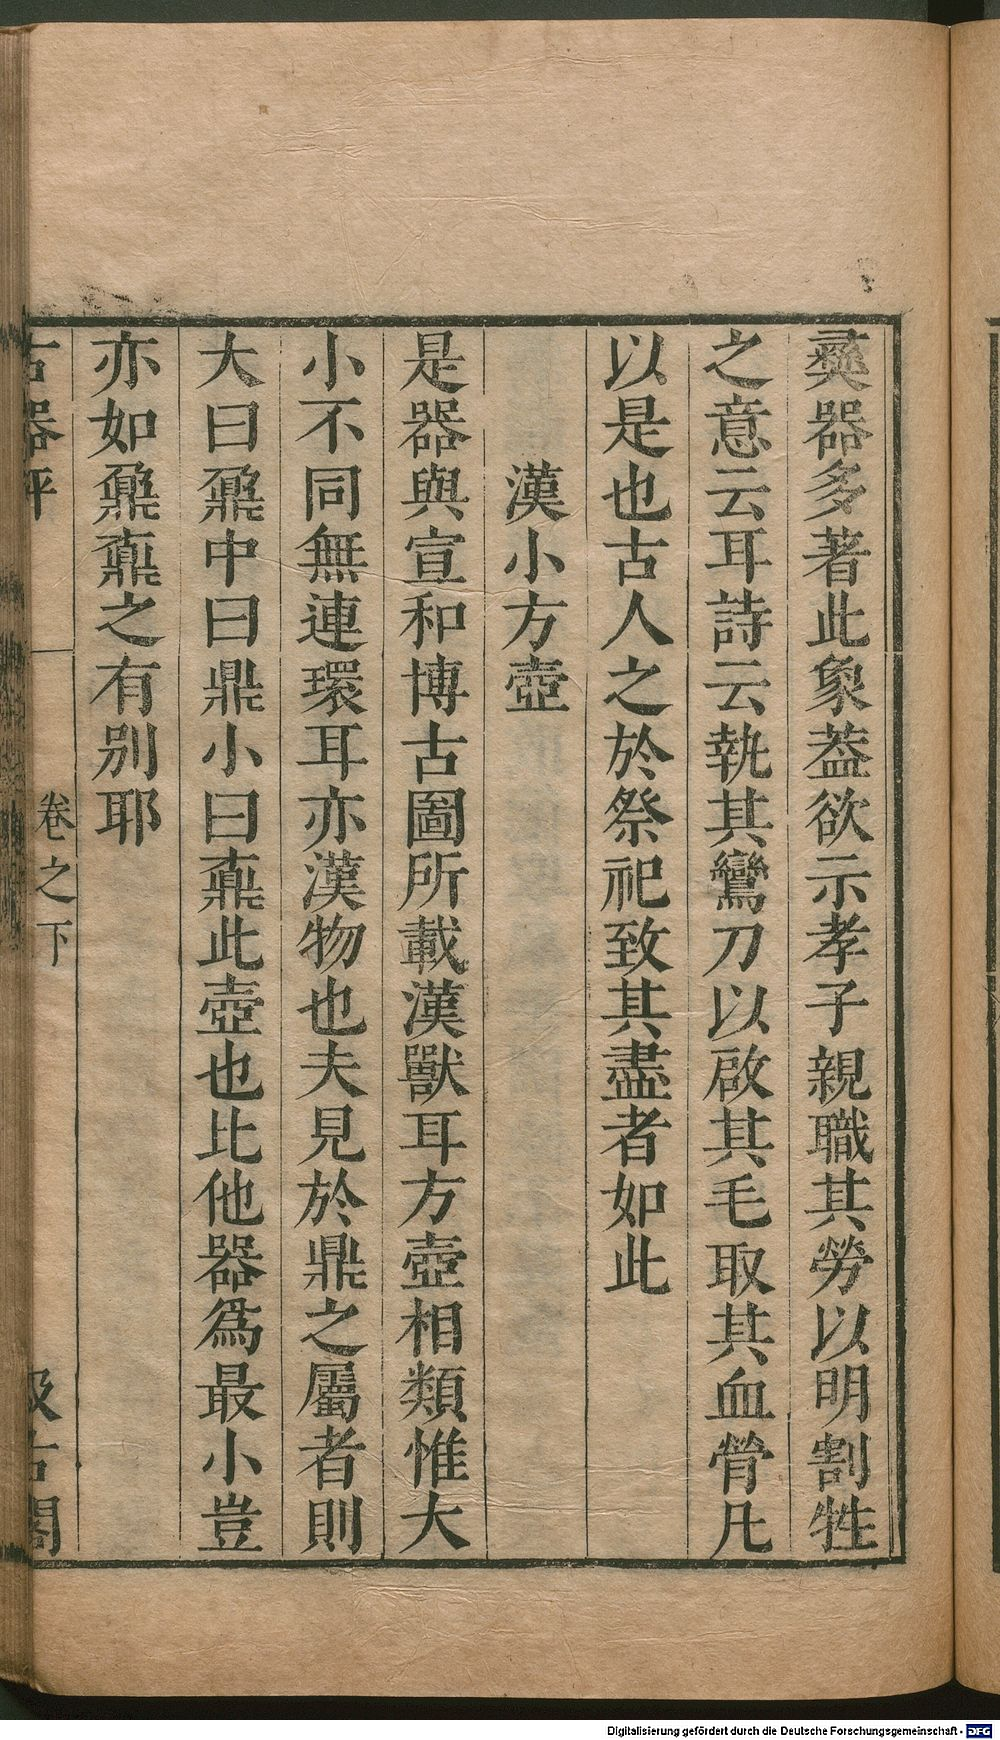 彞器多著此象葢欲示孝子親職其勞以明割牲
之意云耳詩云執其鸞刀以啟其毛取其血膋凡
以是也古人之於祭祀致其盡者如此
漢小方壺
是器與宣和博古圖所載漢獸耳方壺相類惟大
小不同無連環耳亦漢物也夫見於鼎之屬者則
大曰鼐中曰鼎小曰鼒此壺也比他器爲最小豈
亦如鼐鼒之有別耶
古器評
卷之下
汲古閣
Digitalisierung gefördert durch die Deutsche Forschungsgemeinschaft - DFG